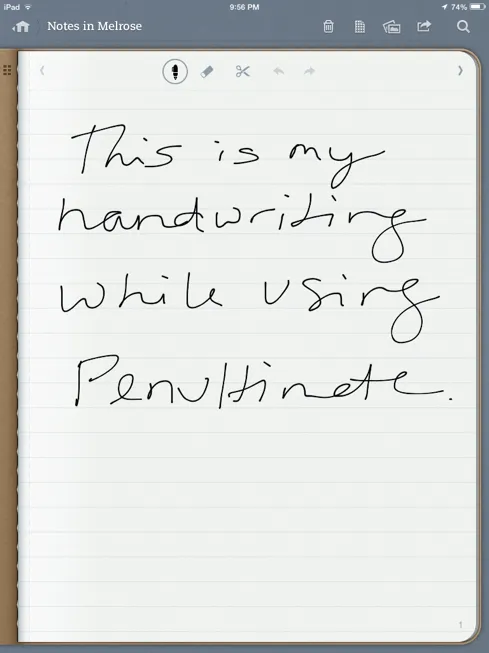 iPad 9:56 PM 74%
Notes in Melrose
This is my
handwriting
while using
Penultimate.
1